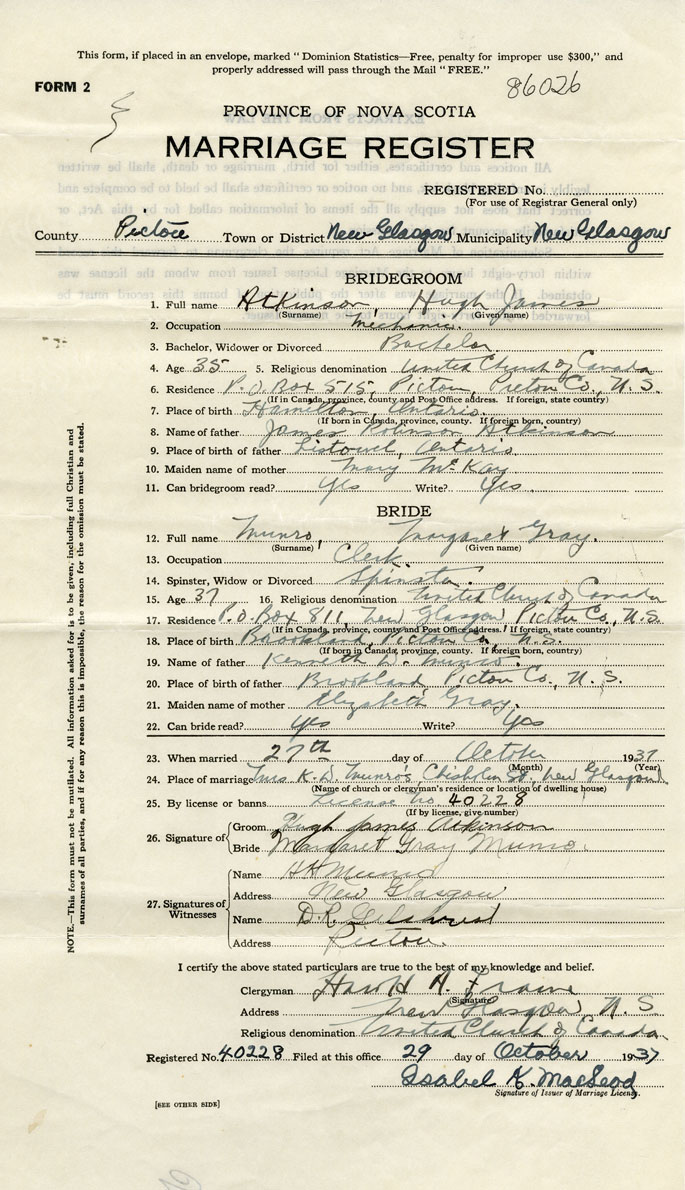 This form, if placed in an envelope, marked "Dominion Statistics—Free, penalty for improper use $300," and
properly addressed will pass through the Mail "FREE."
FORM 2
86026
PROVINCE OF NOVA SCOTIA
MARRIAGE REGISTER
REGISTERED No.
(For use of Registrar General only)
County Pictou Town or District New Glasgow Municipality New Glasgow
BRIDEGROOM
1. Full name Atkinson, Hugh James
(Surname) (Given name)
2. Occupation Mechanic.
3. Bachelor, Widower or Divorced Bachelor
4. Age 35 5. Religious denomination United Church of Canada
6. Residence P.O. Box 515, Pictou, Pictou Co., N.S.
(If in Canada, province, county and Post Office address. If foreign, state country)
7. Place of birth Hamilton, Ontario.
(If born in Canada, province, county. If foreign born, country)
8. Name of father James Robinson Atkinson
9. Place of birth of father Listowel, Ontario
10. Maiden name of mother Mary McKay
11. Can bridegroom read? Yes Write? Yes.
BRIDE
12. Full name Munro, Margaret Gray.
(Surname) (Given name)
13. Occupation Clerk.
14. Spinster, Widow or Divorced Spinster.
15. Age 37 16. Religious denomination United Church of Canada
17. Residence P.O. Box 811, New Glasgow, Pictou Co., N.S.
(If in Canada, province, county and Post Office address. If foreign, state country)
18. Place of birth Brookland, Pictou Co., N.S.
(If born in Canada, province, county. If foreign born, country)
19. Name of father Kenneth D. Munro.
20. Place of birth of father Brookland, Pictou Co., N.S.
21. Maiden name of mother Elizabeth Gray.
22. Can bride read? Yes Write? Yes
23. When married 27th day of October 1937
(Month) (Year)
24. Place of marriage Mrs K. D. Munro's, Chisholm St., New Glasgow
(Name of church or clergyman's residence or location of dwelling house)
25. By license or banns License No. 40228
(If by license, give number)
26. Signature of Groom Hugh James Atkinson
Bride Margaret Gray Munro.
27. Signatures of Witnesses
Name H H Munro
Address New Glasgow
Name D.R.
Address Pictou.
I certify the above stated particulars are true to the best of my knowledge and belief.
Clergyman Harold A.
(Signature)
Address New Glasgow, N.S
Religious denomination United Church of Canada
Registered No. 40228 Filed at this office 29 day of October 1937
Isabel K. MacLeod
Signature of Issuer of Marriage License.
[SEE OTHER SIDE]
NOTE.—This form must not be mutilated. All information asked for is to be given, including full Christian and
surnames of all parties, and if for any reason this is impossible, the reason for the omission must be stated.